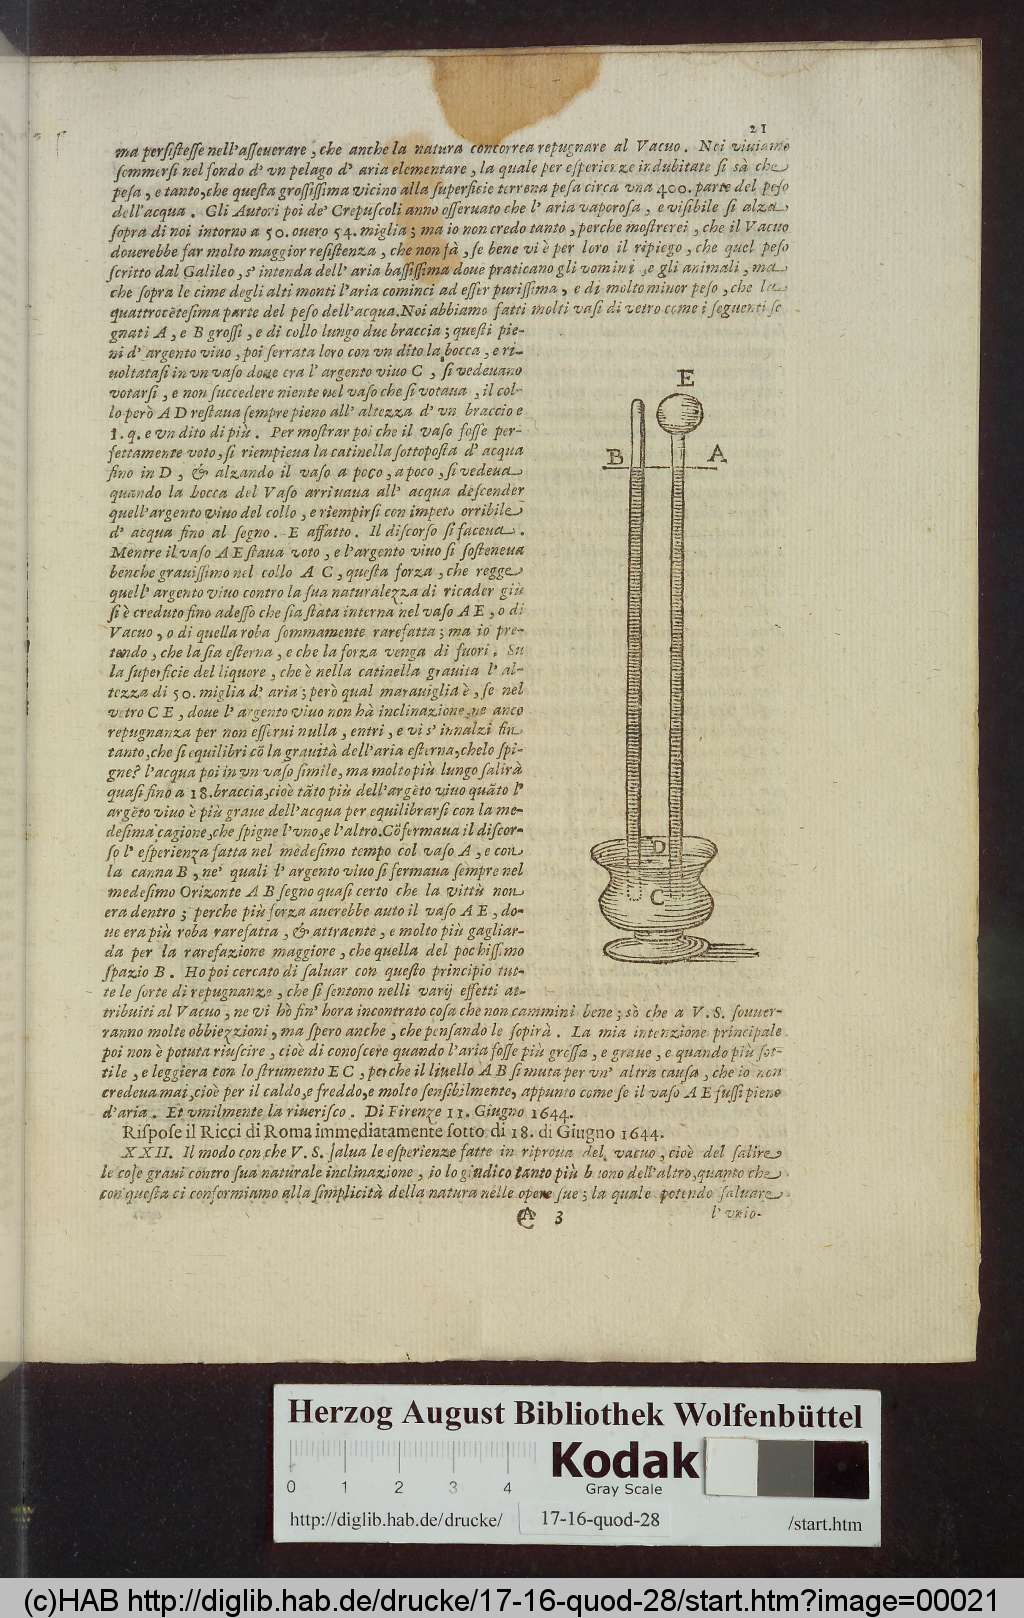 21
ma persistesse nell'asseuerare, che anche la natura concorrea repugnare al Vacuo. Noi viviamo
sommersi nel fondo d' vn pelago d' aria elementare, la quale per esperienze indubitate si sà che
pesa, e tanto, che questa grossissima vicino alla superficie terrena pesa circa vna 400. parte del peso
dell'acqua. Gli Autori poi de' Crepuscoli anno osseruato che l' aria vaporosa, e visibile si alza
sopra di noi intorno a 50. ouero 54. miglia; ma io non credo tanto, perche mostrerei, che il Vacuo
douerebbe far molto maggior resistenza, che non fà, se bene vi è per loro il ripiego, che quel peso
scritto dal Galileo, s' intenda dell' aria bassissima doue praticano gli vomini, e gli animali, ma
che sopra le cime degli alti monti l'aria cominci ad esser purissima, e di molto minor peso, che la
quattrocētesima parte del peso dell'acqua. Noi abbiamo fatti molti vasi di vetro come i seguenti se
gnati A, e B grossi, e di collo lungo due braccia; questi pie-
ni d' argento viuo, poi serrata loro con vn dito la bocca, e ri-
uoltatasi in vn vaso doue era l' argento viuo C, si vedeuano
votarsi, e non succedere niente nel vaso che si votaua, il col-
lo però A D restaua sempre pieno all' altezza d' vn braccio e
1. q. e vn dito di più. Per mostrar poi che il vaso fosse per-
fettamente voto, si riempieua la catinella sottoposta d' acqua
fino in D, & alzando il vaso a poco, a poco, si vedeua
quando la bocca del Vaso arriuaua all' acqua descender
quell'argento viuo del collo, e riempirsi con impeto orribile
d' acqua fino al segno. E affatto. Il discorso si faceua.
Mentre il vaso A E staua voto, e l'argento viuo si sosteneua
benche grauissimo nel collo A C, questa forza, che regge
quell' argento viuo contro la sua naturalezza di ricader giù
si è creduto fino adesso che sia stata interna nel vaso A E, o di
Vacuo, o di quella roba sommamente rarefatta; ma io pre-
tendo, che la sia esterna, e che la forza venga di fuori. Su
la superficie del liquore, che è nella catinella grauita l' al-
tezza di 50. miglia d' aria; però qual marauiglia è, se nel
vetro C E, doue l' argento viuo non hà inclinazione, ne anco
repugnanza per non esserui nulla, entri, e vi s' innalzi fin
tanto, che si equilibri cō la grauità dell'aria esterna, che lo spi-
gne? l'acqua poi in vn vaso simile, ma molto più lungo salirà
quasi fino a 18. braccia, cioè tāto più dell'argēto viuo quāto l'
argēto viuo è più graue dell'acqua per equilibrarsi con la me-
desima cagione, che spigne l'vno, e l'altro. Cōfermaua il discor-
so l' esperienza fatta nel medesimo tempo col vaso A, e con
la canna B, ne' quali l' argento viuo si fermaua sēmpre nel
medesimo Orizonte A B segno quasi certo che la virtù non
era dentro; perche più forza auerebbe auto il vaso A E, do-
ue era più roba rarefatta, & attraente, e molto più gagliar-
da per la rarefazione maggiore, che quella del pochissimo
spazio B. Ho poi cercato di saluar con questo principio tut-
te le sorte di repugnanze, che si sentono nelli varij effetti at-
tribuiti al Vacuo, ne vi hò fin' hora incontrato cosa che non cammini bene; sò che a V. S. souuer-
ranno molte obbiezzioni, ma spero anche, che pensando le sopirà. La mia intenzione principale
poi non è potuta riuscire, cioè di conoscere quando l'aria fosse più grossa, e graue, e quando più sot-
tile, e leggiera con lo strumento E C, perche il liuello A B si muta per vn' altra causa, che io non
credeua mai, cioè per il caldo, e freddo, e molto sensibilmente, appunto come se il vaso A E fussi pieno
d'aria. Et vmilmente la riuerisco. Di Firenze 11. Giugno 1644.
Rispose il Ricci di Roma immediatamente sotto di 18. di Giugno 1644.
XXII. Il modo con che V. S. salua le esperienze fatte in riproua del vacuo, cioè del salire
le cose graui contro sua naturale inclinazione, io lo giudico tanto più buono dell'altro, quanto che
con questa ci conformiamo alla simplicità della natura nelle opere sue; la quale potendo saluare
A 3 l' vnio-
E
B A
D
C
Herzog August Bibliothek Wolfenbüttel
Kodak
Gray Scale
0 1 2 3 4
http://diglib.hab.de/drucke/ 17-16-quod-28 /start.htm
(c)HAB http://diglib.hab.de/drucke/17-16-quod-28/start.htm?image=00021